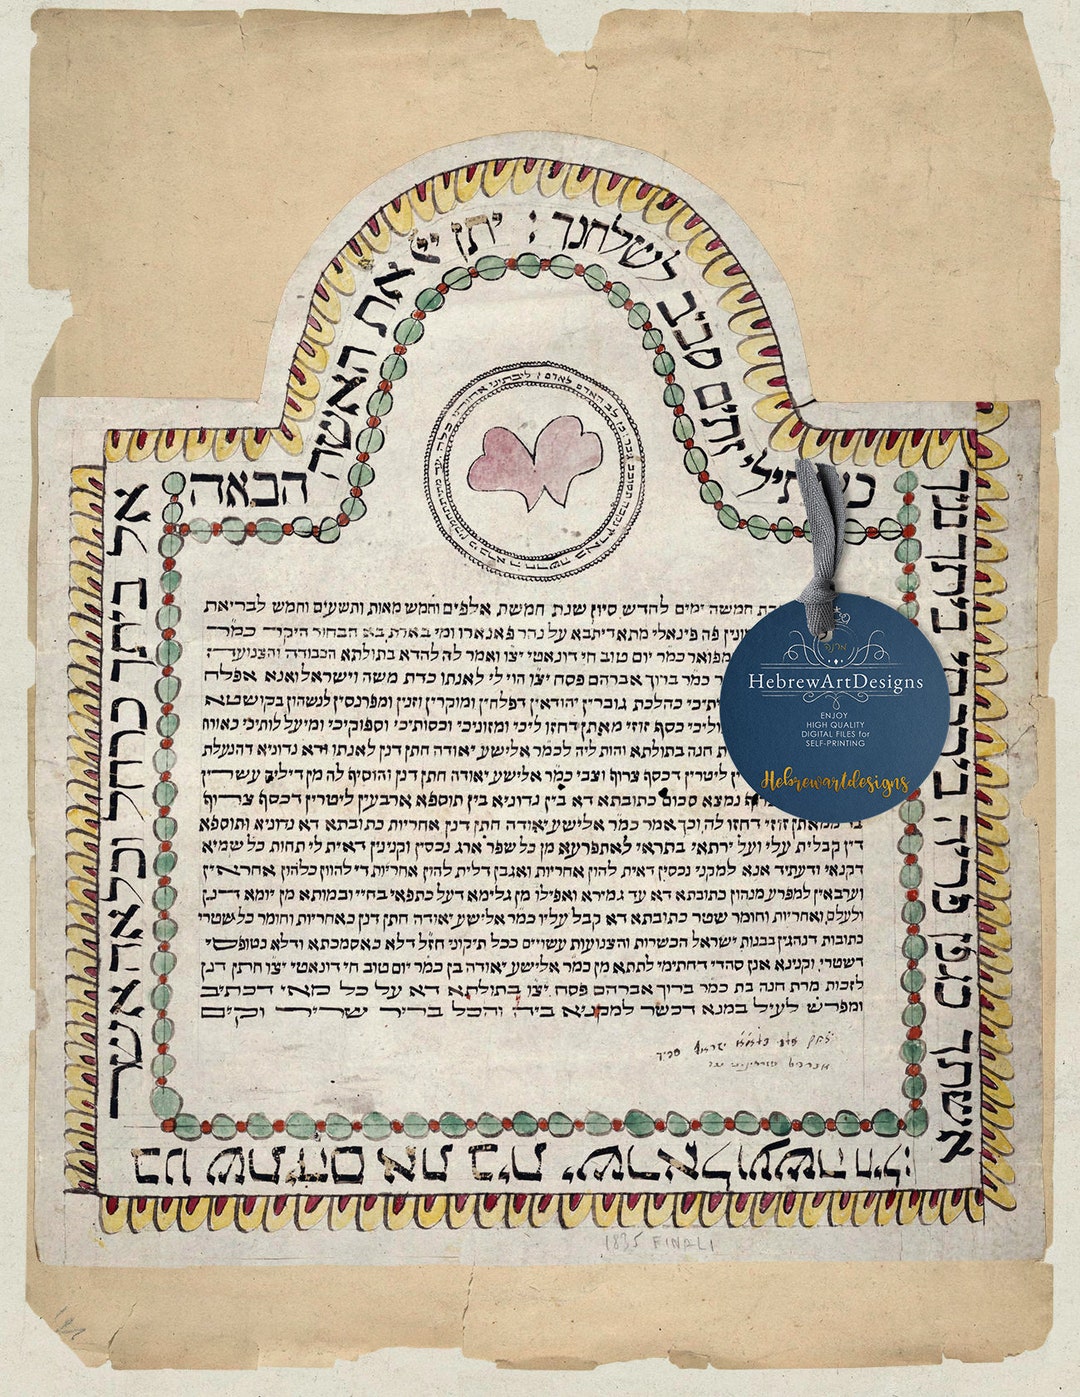 אשתך כגפן פריה בירכתי ביתך בניך
כשתילי זתים סביב לשלחנך : יתן יי את האשה
הבאה
אל ביתך כרחל וכלאה אשר
בנו שתיהם את בית ישראל ועשה חיל
חמשה ימים לחדש סיון שנת חמשת אלפים וחמש מאות ותשעים וחמש לבריאת
פה פינאלי מתא דיתבא על נהר פאנארו ומי בארת בא הבחור היקר כמ״ר
כמ״ר יום טוב חי דונאטי יצו ואמר לה להדא בתולתא הכבודה והצנועה
כמ״ר ברוך אברהם פסח יצו הוי לי לאנתו כדת משה וישראל ואנא אפלח
כהלכת גוברין יהודאין דפלחין ומוקרין וזנין ומפרנסין לנשהון בקושטא
ליכי כסף זוזי מאתן דחזו ליכי ומזוניכי וכסותיכי וספוקיכי ומיעל לותיכי כאורח
חנה בתולתא והות ליה לכמ״ר אלישע יאודה חתן דנן לאנתו ודא נדוניא דהנעלת
ליטרין דכסף צרוף וצבי כמ״ר אלישע יאודה חתן דנן והוסיף לה מן דיליה עשרין
נמצא סכום כתובתא דא בין נדוניא בין תוספא ארבעין ליטרין דכסף צרוף
בר ממאתן זוזי דחזו לה וכך אמר כמ״ר אלישע יאודה חתן דנן אחריות כתובתא דא נדוניא ותוספא
דין קבלית עלי ועל ירתאי בתראי לאתפרעא מן כל שפר ארג נכסין וקנינין דאית לי תחות כל שמיא
דקנאי ודעתיד אנא למקני נכסין דאית להון אחריות ואגבן דלית להון אחריות די להוון כלהון אחראין
וערבאין למפרע מנהון כתובתא דא עד גמירא ואפילו מן גלימא דעל כתפאי בחיי ובמותא מן יומא דנן
ולעלם ואחריות וחומר שטר כתובתא דא קבל עליו כמ״ר אלישע יאודה חתן דנן כאחריות וחומר כל שטרי
כתובות דנהגין בבנות ישראל הכשרות והצנועות עשויים ככל תיקוני חז״ל דלא כאסמכתא ודלא כטופסי
דשטרי. וקנינא אנן סהדי דחתימי לתתא מן כמ״ר אלישע יאודה בן כמ״ר יום טוב חי דונאטי יצו חתן דנן
לזכות מרת חנה בת כמ״ר ברוך אברהם פסח יצו בתולתא דא על כל מאי דכתיב
ומפרש לעיל במנא דכשר למקניא ביה והכל בריר שריר וקים
1835 FINALI
HebrewArtDesigns
ENJOY
HIGH QUALITY
DIGITAL FILES for
SELF-PRINTING
Hebrewartdesigns